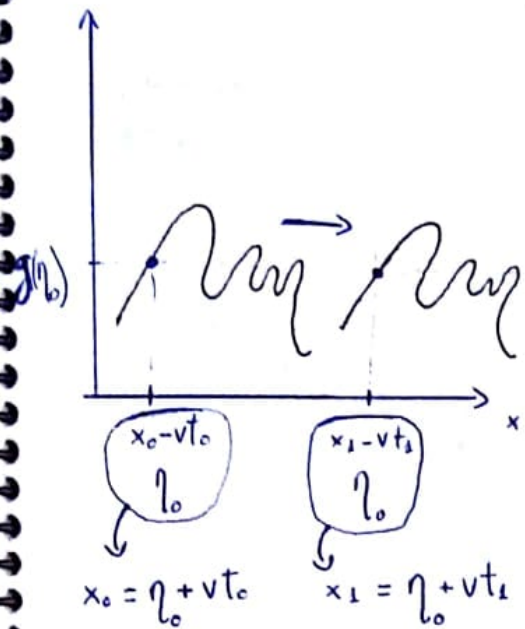 g(η₀)
x
x₀-vt₀
η₀
x₁-vt₁
η₀
x₀ = η₀ + vt₀
x₁ = η₀ + vt₁